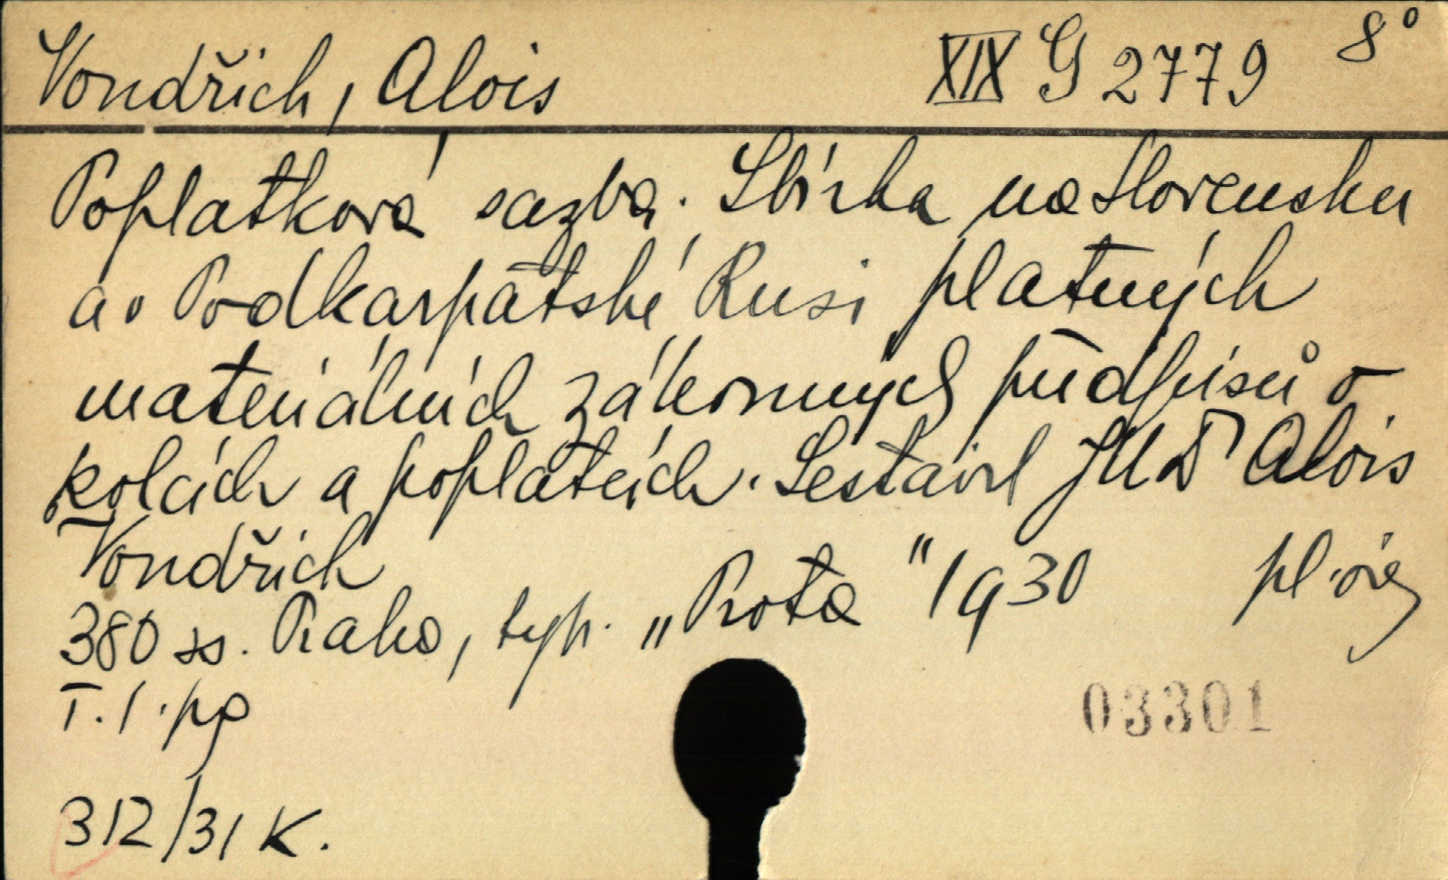 Vondřich, Alois XIX G 2779 8°
Poplatková sazba. Sbírka na Slovensku
a v Podkarpatské Rusi platných
materiálních zákonných předpisů o
kolcích a poplatcích. Sestavil JUDr Alois
Vondřich
380 ss. Praha, typ. „Prota" 1930
T. 1. pg
03301
312/31 K.